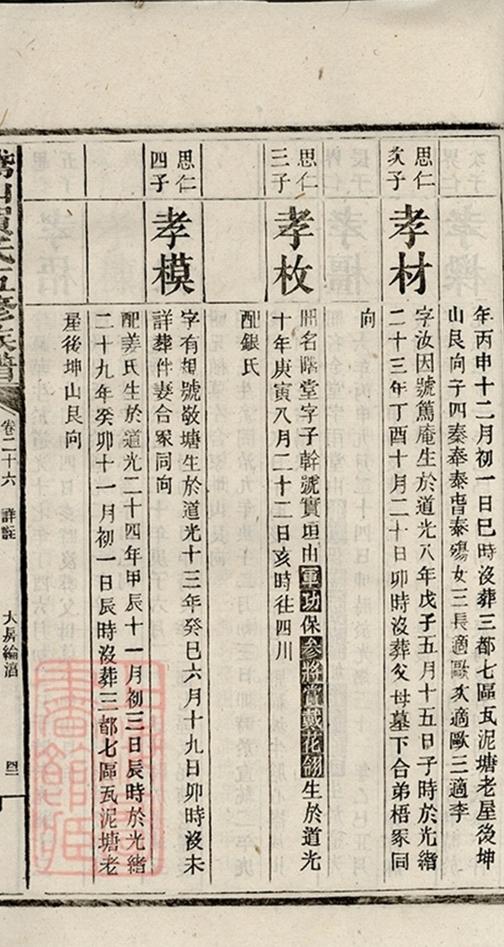 年丙申十二月初一日巳時沒葬三都七區瓦泥塘老屋後坤
山艮向子四秦奉泰泰殤女三長適歐次適歐三適李
思仁
次子
孝材
字汝因號篤庵生於道光八年戊子五月十五日子時於光緒
二十三年丁酉十月二十日卯時沒葬父母墓下合弟梧冢同
向
思仁
三子
孝枚
開名階堂字子幹號實垣由軍功保參將賞戴花翎生於道光
十年庚寅八月二十二日亥時往四川
配銀氏
思仁
四子
孝模
字有楒號敬塘生於道光十三年癸巳六月十九日卯時沒未
詳葬件妻合冢同向
配姜氏生於道光二十四年甲辰十一月初三日辰時於光緒
二十九年癸卯十一月初一日辰時沒葬三都七區瓦泥塘老
屋後坤山艮向
氏五修族譜
卷二十六
詳註
大房綸派